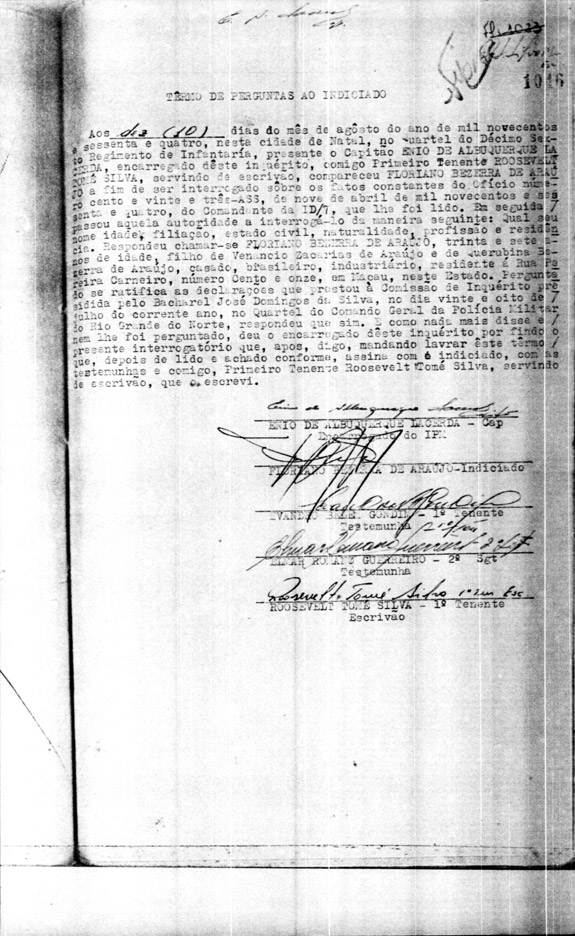 1016
TÊRMO DE PERGUNTAS AO INDICIADO
Aos dez (10) dias do mês de agôsto do ano de mil novecentos
e sessenta e quatro, nesta cidade de Natal, no Quartel do Décimo Sex-
to Regimento de Infantaria, presente o Capitão ENIO DE ALBUQUERQUE LA
CERDA, encarregado dêste inquérito, comigo Primeiro Tenente ROOSEVELT
TOMÉ SILVA, servindo de escrivão, compareceu FLORIANO BEZERRA DE ARAÚ
JO a fim de ser interrogado sôbre os fatos constantes do Ofício núme-
ro cento e vinte e três-ASS, de nove de abril de mil novecentos e ses
senta e quatro, do Comandante da ID/7, que lhe foi lido. Em seguida /
passou aquela autoridade a interrogá-lo da maneira seguinte: Qual seu
nome idade, filiação, estado civil, naturalidade, profissão e residên
cia. Respondeu chamar-se FLORIANO BEZERRA DE ARAÚJO, trinta e sete a-
nos de idade, filho de Venancio Zacarias de Araújo e de Querubina Be-
zerra de Araújo, casado, brasileiro, industriário, residente á Rua Pe
reira Carneiro, número Cento e onze, em Macau, neste Estado. Pergunta
do se ratifica as declarações que prestou à Comissão de Inquérito pre
sidida pelo Bacharel José Domingos da Silva, no dia vinte e oito de /
julho do corrente ano, no Quartel do Comando Geral da Polícia Militar
do Rio Grande do Norte, respondeu que sim. E como nada mais disse e /
nem lhe foi perguntado, deu o encarregado dêste inquérito por findo o
presente interrogatório que, apos, digo, mandando lavrar êste têrmo /
que, depois de lido e achado conforme, assina com o indiciado, com as
testemunhas e comigo, Primeiro Tenente Roosevelt Tomé Silva, servindo
de escrivão, que o escrevi.
ENIO DE ALBUQUERQUE LACERDA - Cap
Encarregado do IPM
FLORIANO BEZERRA DE ARAÚJO-Indiciado
1º Tenente
Testemunha
ROMANO GUERREIRO - 2º Sgt
Testemunha
Roosevelt Tomé Silva 1º Ten Esc
ROOSEVELT TOMÉ SILVA - 1º Tenente
Escrivão